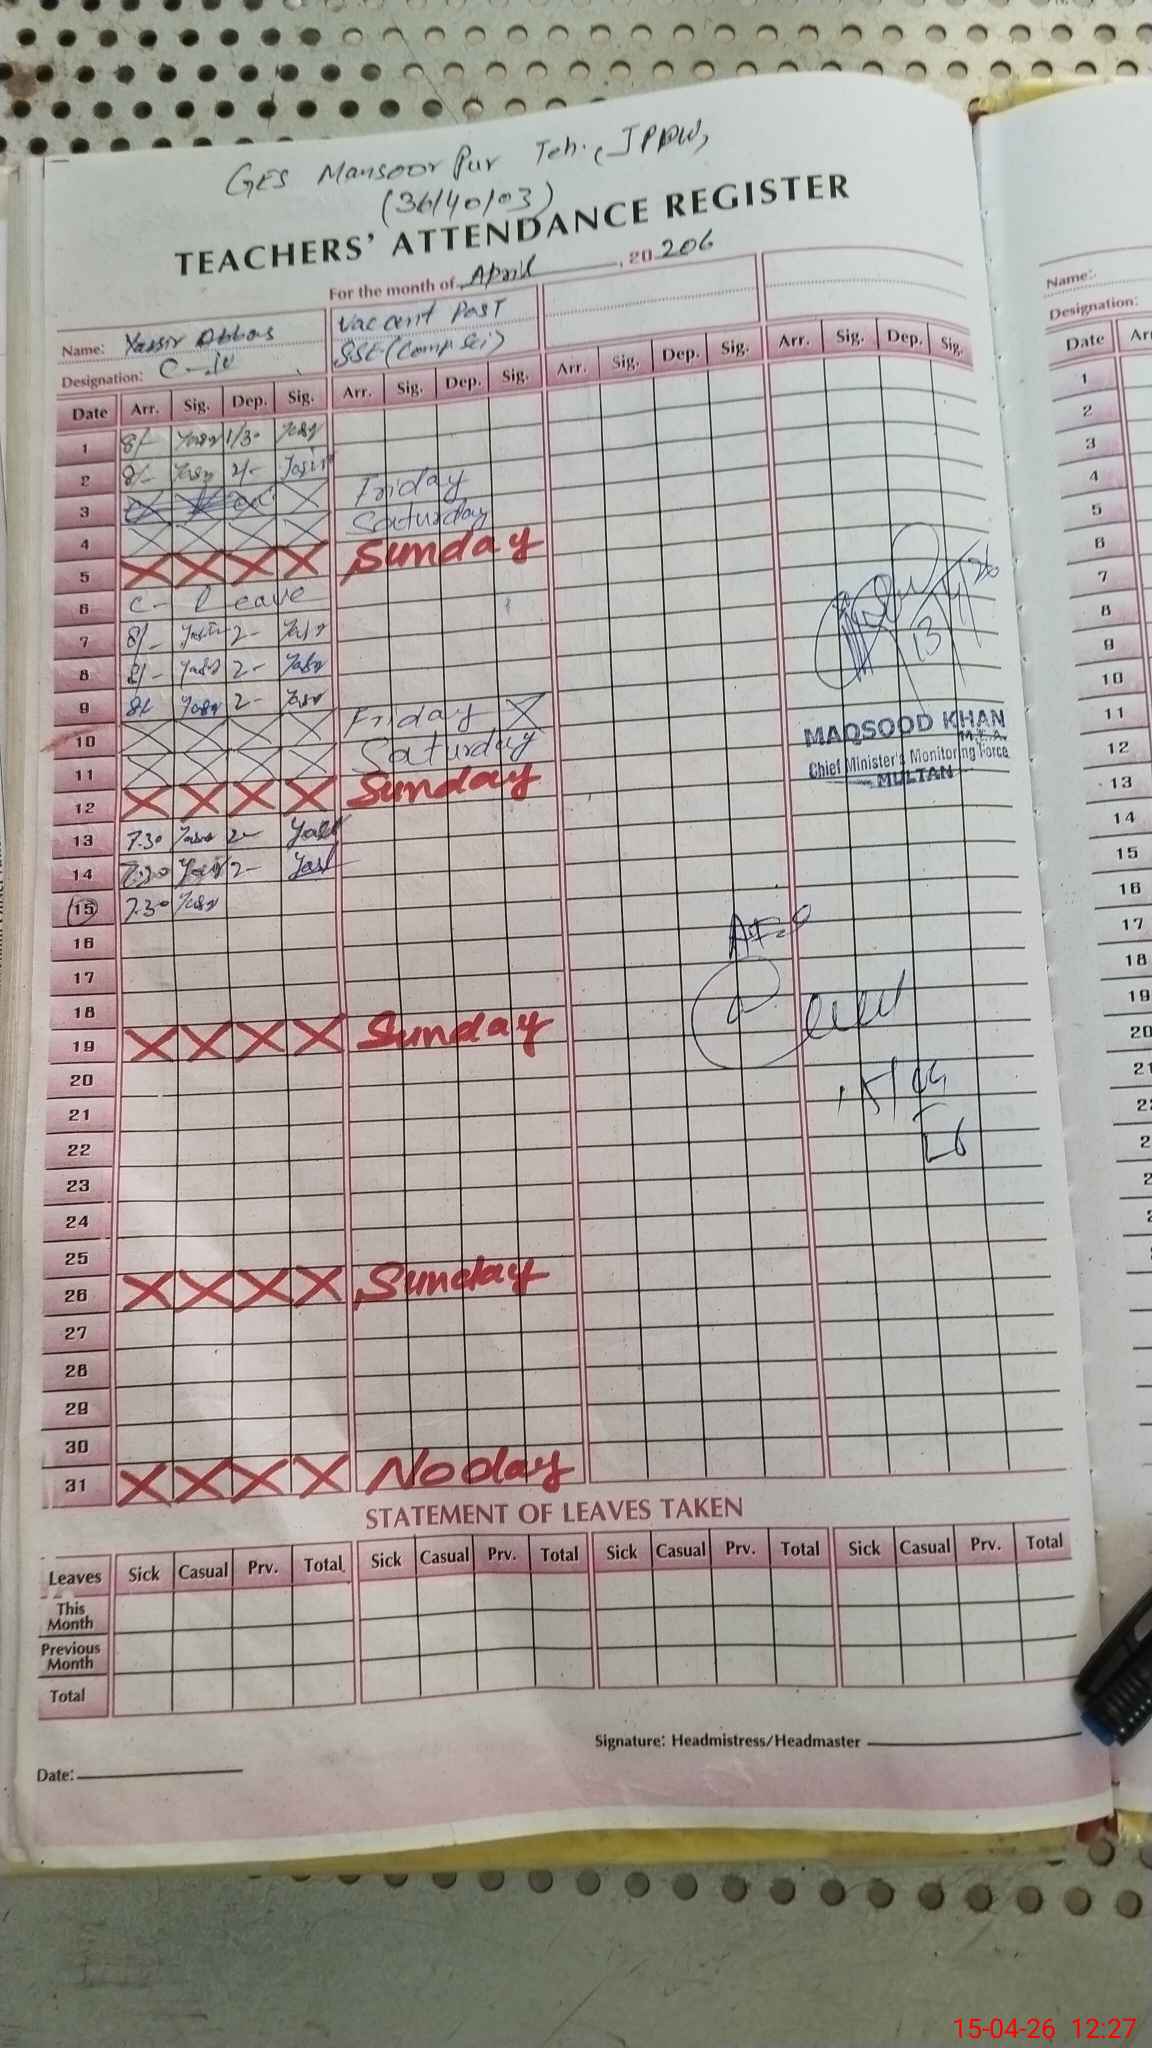 GES Mansoor Pur Teh. (JPPW)
(36/40/03)
TEACHERS' ATTENDANCE REGISTER
For the month of April, 20 206
Name: Yassir Abbas
Vaccent Post
Designation: C-IV
SSE (Comp Sci)
Date Arr. Sig. Dep. Sig. Arr. Sig. Dep. Sig. Arr. Sig. Dep. Sig. Arr. Sig. Dep. Sig.
1 8/- Yasir 1/30 Yasir
2 8/- Yasir 2/- Yasir
3 Friday
4 Saturday
5 Sunday
6 C- leave
7 8/- Yasir 2- Yasir
8 8/- Yasir 2- Yasir
9 8/- Yasir 2- Yasir
10 Friday
11 Saturday
12 Sunday
13 7.30 Yasir 2- Yasir
14 7.30 Yasir 2- Yasir
15 7.30 Yasir
16
17
18
19 Sunday
20
21
22
23
24
25
26 Sunday
27
28
29
30
31 No day
13/4/26
MAQSOOD KHAN
M.E.A.
Chief Minister's Monitoring Force
MULTAN
15/04
26
STATEMENT OF LEAVES TAKEN
Leaves Sick Casual Prv. Total Sick Casual Prv. Total Sick Casual Prv. Total Sick Casual Prv. Total
This Month
Previous Month
Total
Signature: Headmistress/Headmaster
Date:
Name:
Designation:
Date
1
2
3
4
5
6
7
8
9
10
11
12
13
14
15
16
17
18
19
20
15-04-26 12:27